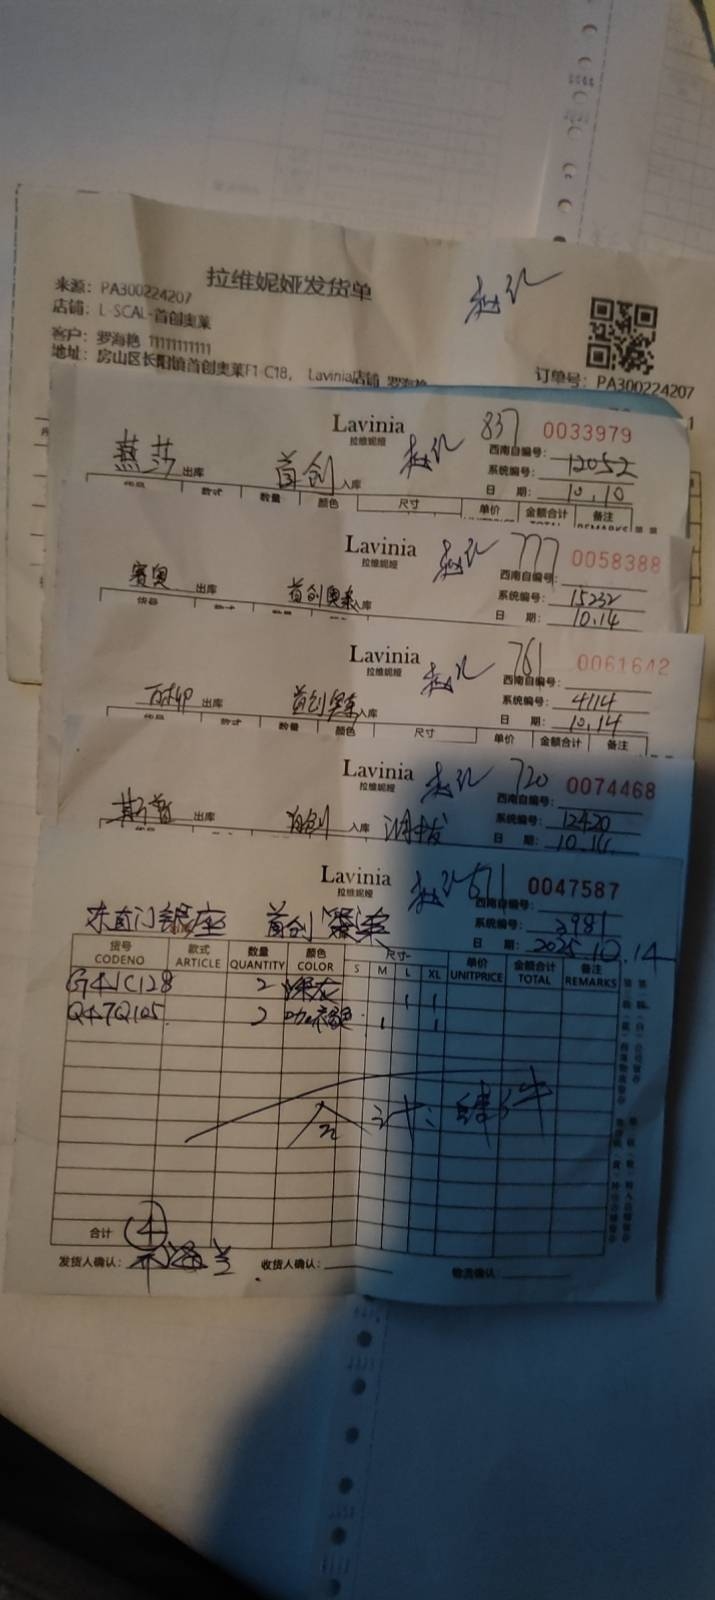 拉维妮娅发货单
来源：PA300224207
店铺：L-SCAL-首创奥莱
客户：罗海艳 11111111111
地址：房山区长阳镇首创奥莱F1-C18， Lavinia店铺 罗海艳
订单号：PA300224207
Lavinia 837 0033979
拉维妮娅
西南自编号：
燕莎 出库 首创 入库 系统编号：12052
日 期：10.10
货品 款式 数量 颜色 尺寸 单价 金额合计 备注
UNITPRICE TOTAL REMARKS
Lavinia 777 0058388
拉维妮娅
西南自编号：
赛奥 出库 首创奥莱 入库 系统编号：15232
日 期：10.14
货号 款式 数量 颜色
Lavinia 761 0061642
拉维妮娅
西南自编号：
出库 首创奥莱 入库 系统编号：4114
日 期：10.14
货品 款式 数量 颜色 尺寸 单价 金额合计 备注
Lavinia 720 0074468
拉维妮娅
西南自编号：
出库 首创 入库 系统编号：12420
日 期：10.14
Lavinia 671 0047587
拉维妮娅
西南自编号：
东直门银座 首创 系统编号：3981
日 期：2025.10.14
货号 款式 数量 颜色 尺寸 单价 金额合计 备注
CODENO ARTICLE QUANTITY COLOR S M L XL UNITPRICE TOTAL REMARKS
G41C128 2 深灰 1 1
Q47Q105 2 1 1
合计：肆件
合计 4
发货人确认： 收货人确认： 物流确认：